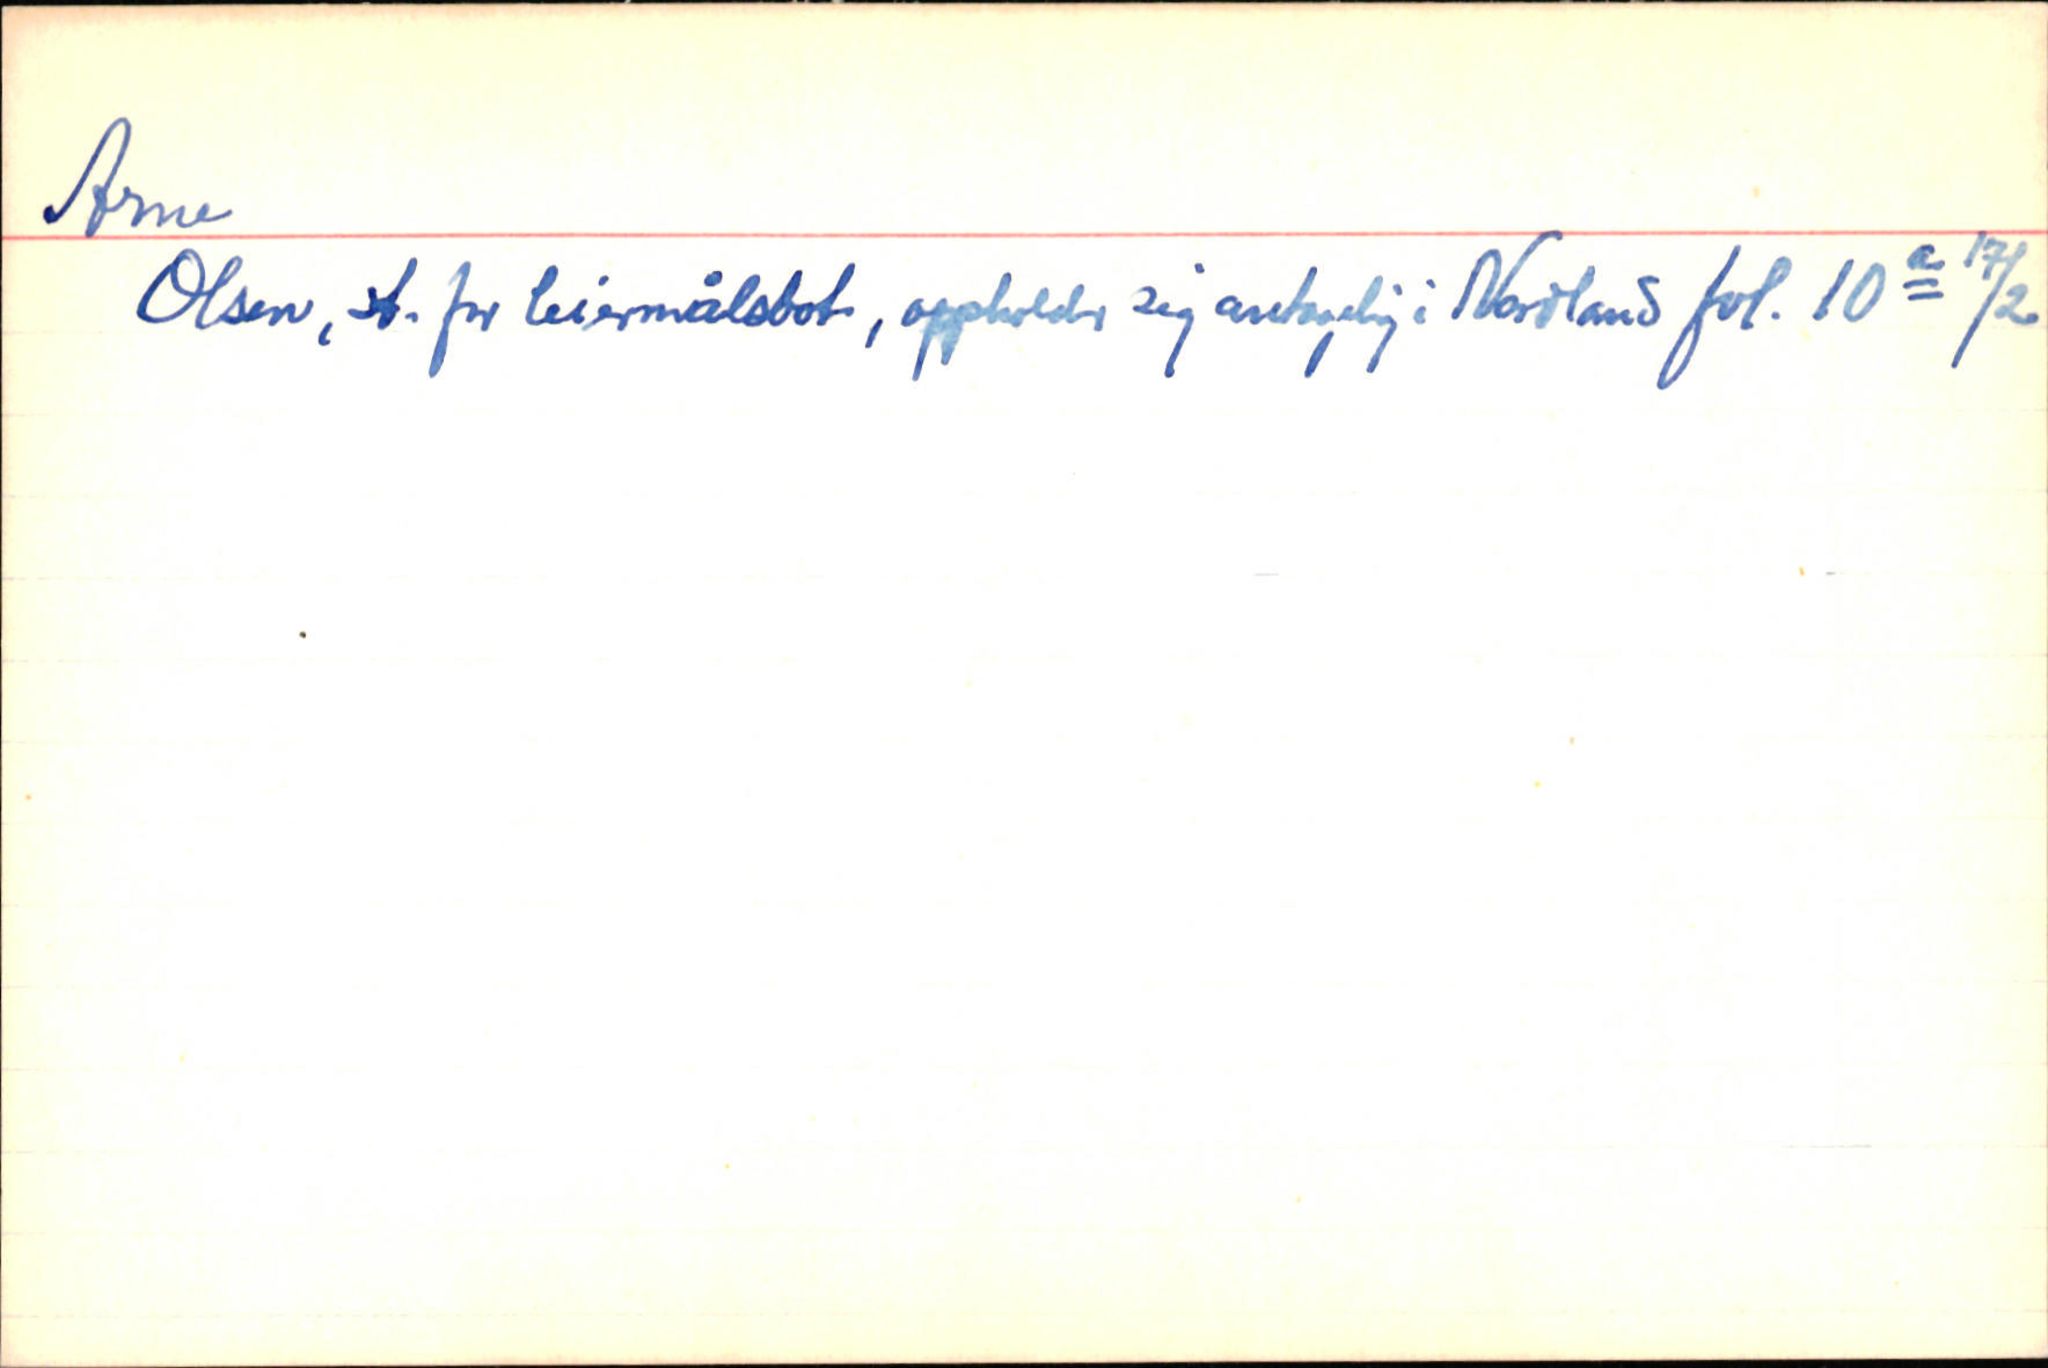 Arne
Olsen, st. for leiermålsbot, oppholder sig antagelig i Nordland fol. 10 a 17/2